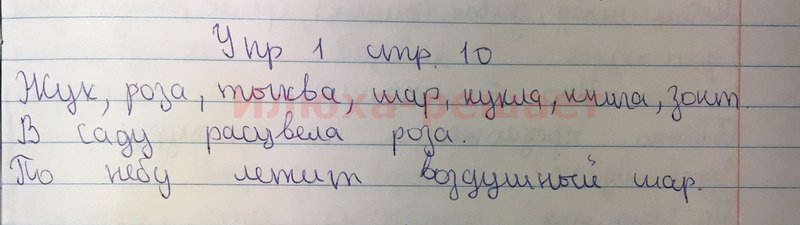 Упр 1 стр. 10
Жук, роза, тыква, шар, кукла, книга, зонт.
илюха решает
В саду расцвела роза.
По небу летит воздушный шар.